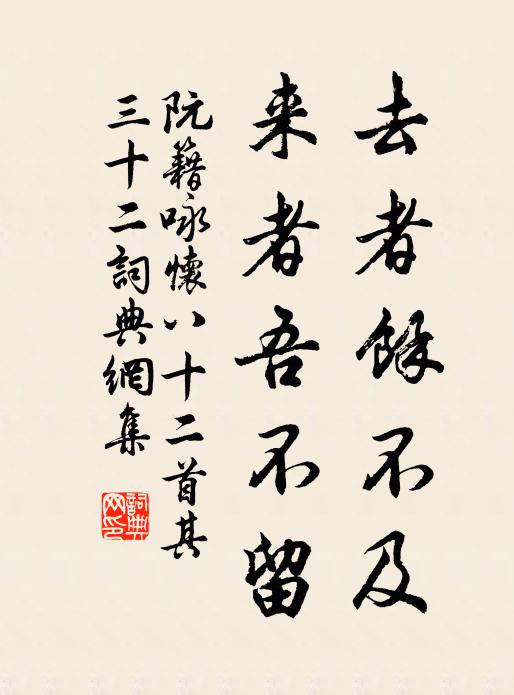 去者餘不及
来者吾不留
阮籍咏懷八十二首其
三十二詞典網集
詞典
网印